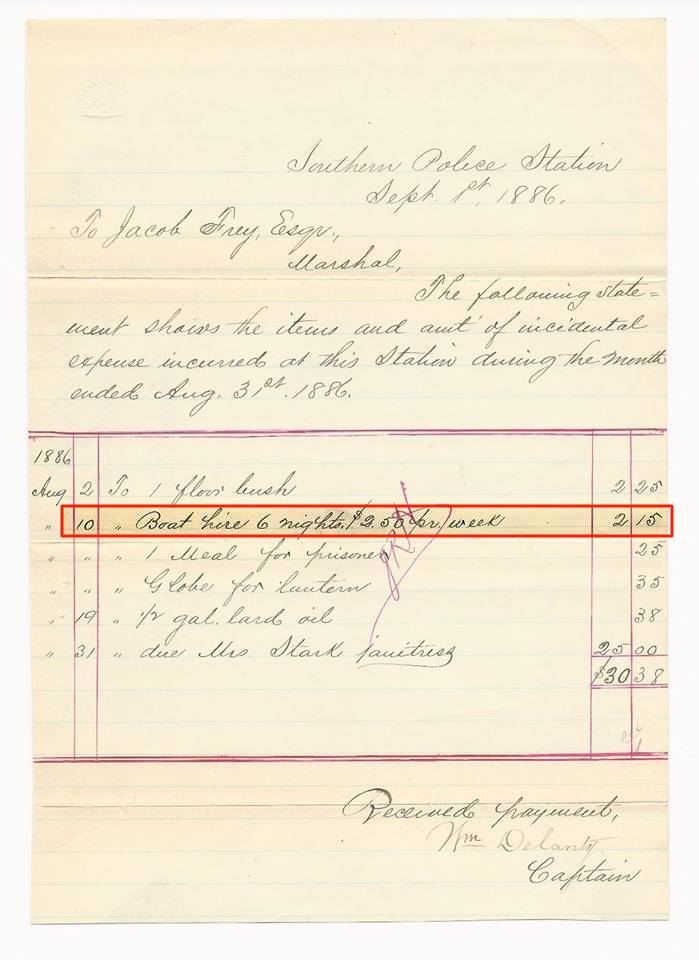 Southern Police Station
Sept. 1st, 1886.
To Jacob Frey, Esqr.,
Marshal,
The following state=
ment shows the items and amt' of incidental
expense incurred at this Station during the month
ended Aug. 31st. 1886.
1886
Aug 2 To 1 floor bush 2 25
" 10 " Boat hire 6 nights. $2.50 pr. week 2 15
" " " 1 Meal for prisoner 25
" " " Globe for lantern 35
" 19 " 1/2 gal. lard oil 38
" 31 " due Mrs. Stark janitress 25 00
$30 38
Received payment,
Wm Delanty
Captain